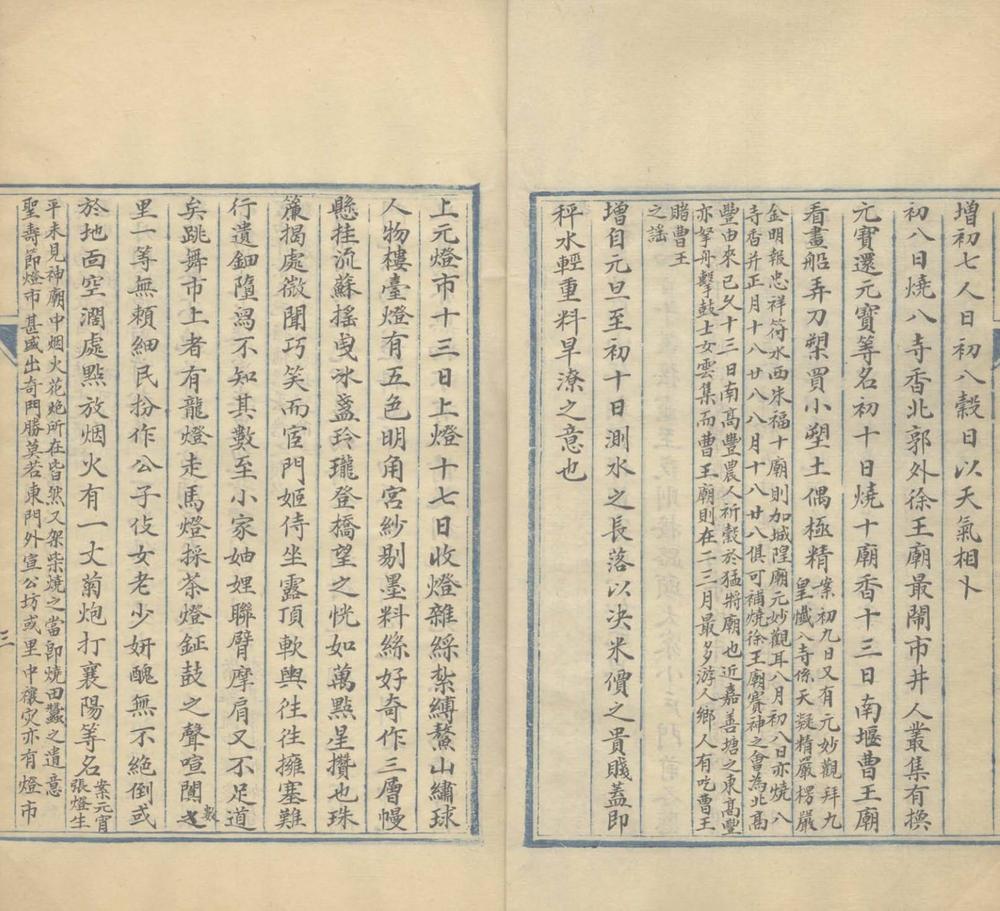 增初七人日初八穀日以天氣相卜
初八日燒八寺香北郭外徐王廟最鬧市井人叢集有換
元寶還元寶等名初十日燒十廟香十三日南堰曹王廟
看畫船弄刀槊買小塑土偶極精案初九日又有元妙觀拜九
皇懺八寺係天凝精嚴楞嚴
金明報忠祥符水西朱福十廟則加城隍廟元妙觀耳八月初八日亦燒八
寺香并正月十八廿八八月十八廿八俱可補燒徐王廟賽神之會為北高
豐由來已久十三日南高豐農人祈穀於猛將廟也近嘉善塘之東高豐
亦拏舟擊鼓士女雲集而曹王廟則在二三月最多游人鄉人有吃曹王
賠曹王
之謠
增自元旦至初十日測水之長落以決米價之貴賤蓋即
秤水輕重料旱潦之意也
上元燈市十三日上燈十七日收燈雜綵紮縛鰲山繡球
人物樓臺燈有五色明角宮紗剔墨料絲好奇作三層幔
懸挂流蘇搖曳冰盞玲瓏登橋望之恍如萬點星攢也珠
簾揭處微聞巧笑而官門姬侍坐露頂軟輿往往擁塞難
行遺鈿墮舄不知其數至小家妯娌聯臂摩肩又不足道
矣跳舞市上者有龍燈走馬燈採茶燈鉦鼓之聲喧闐數
里一等無賴細民扮作公子伎女老少妍醜無不絕倒或
於地面空濶處點放烟火有一丈菊炮打襄陽等名案元宵
張燈生
平未見神廟中烟火花炮所在皆然又架柴燒之當即燒田蠶之遺意
聖壽節燈市甚盛出奇鬥勝莫若東門外宣公坊或里中禳灾亦有燈市
三